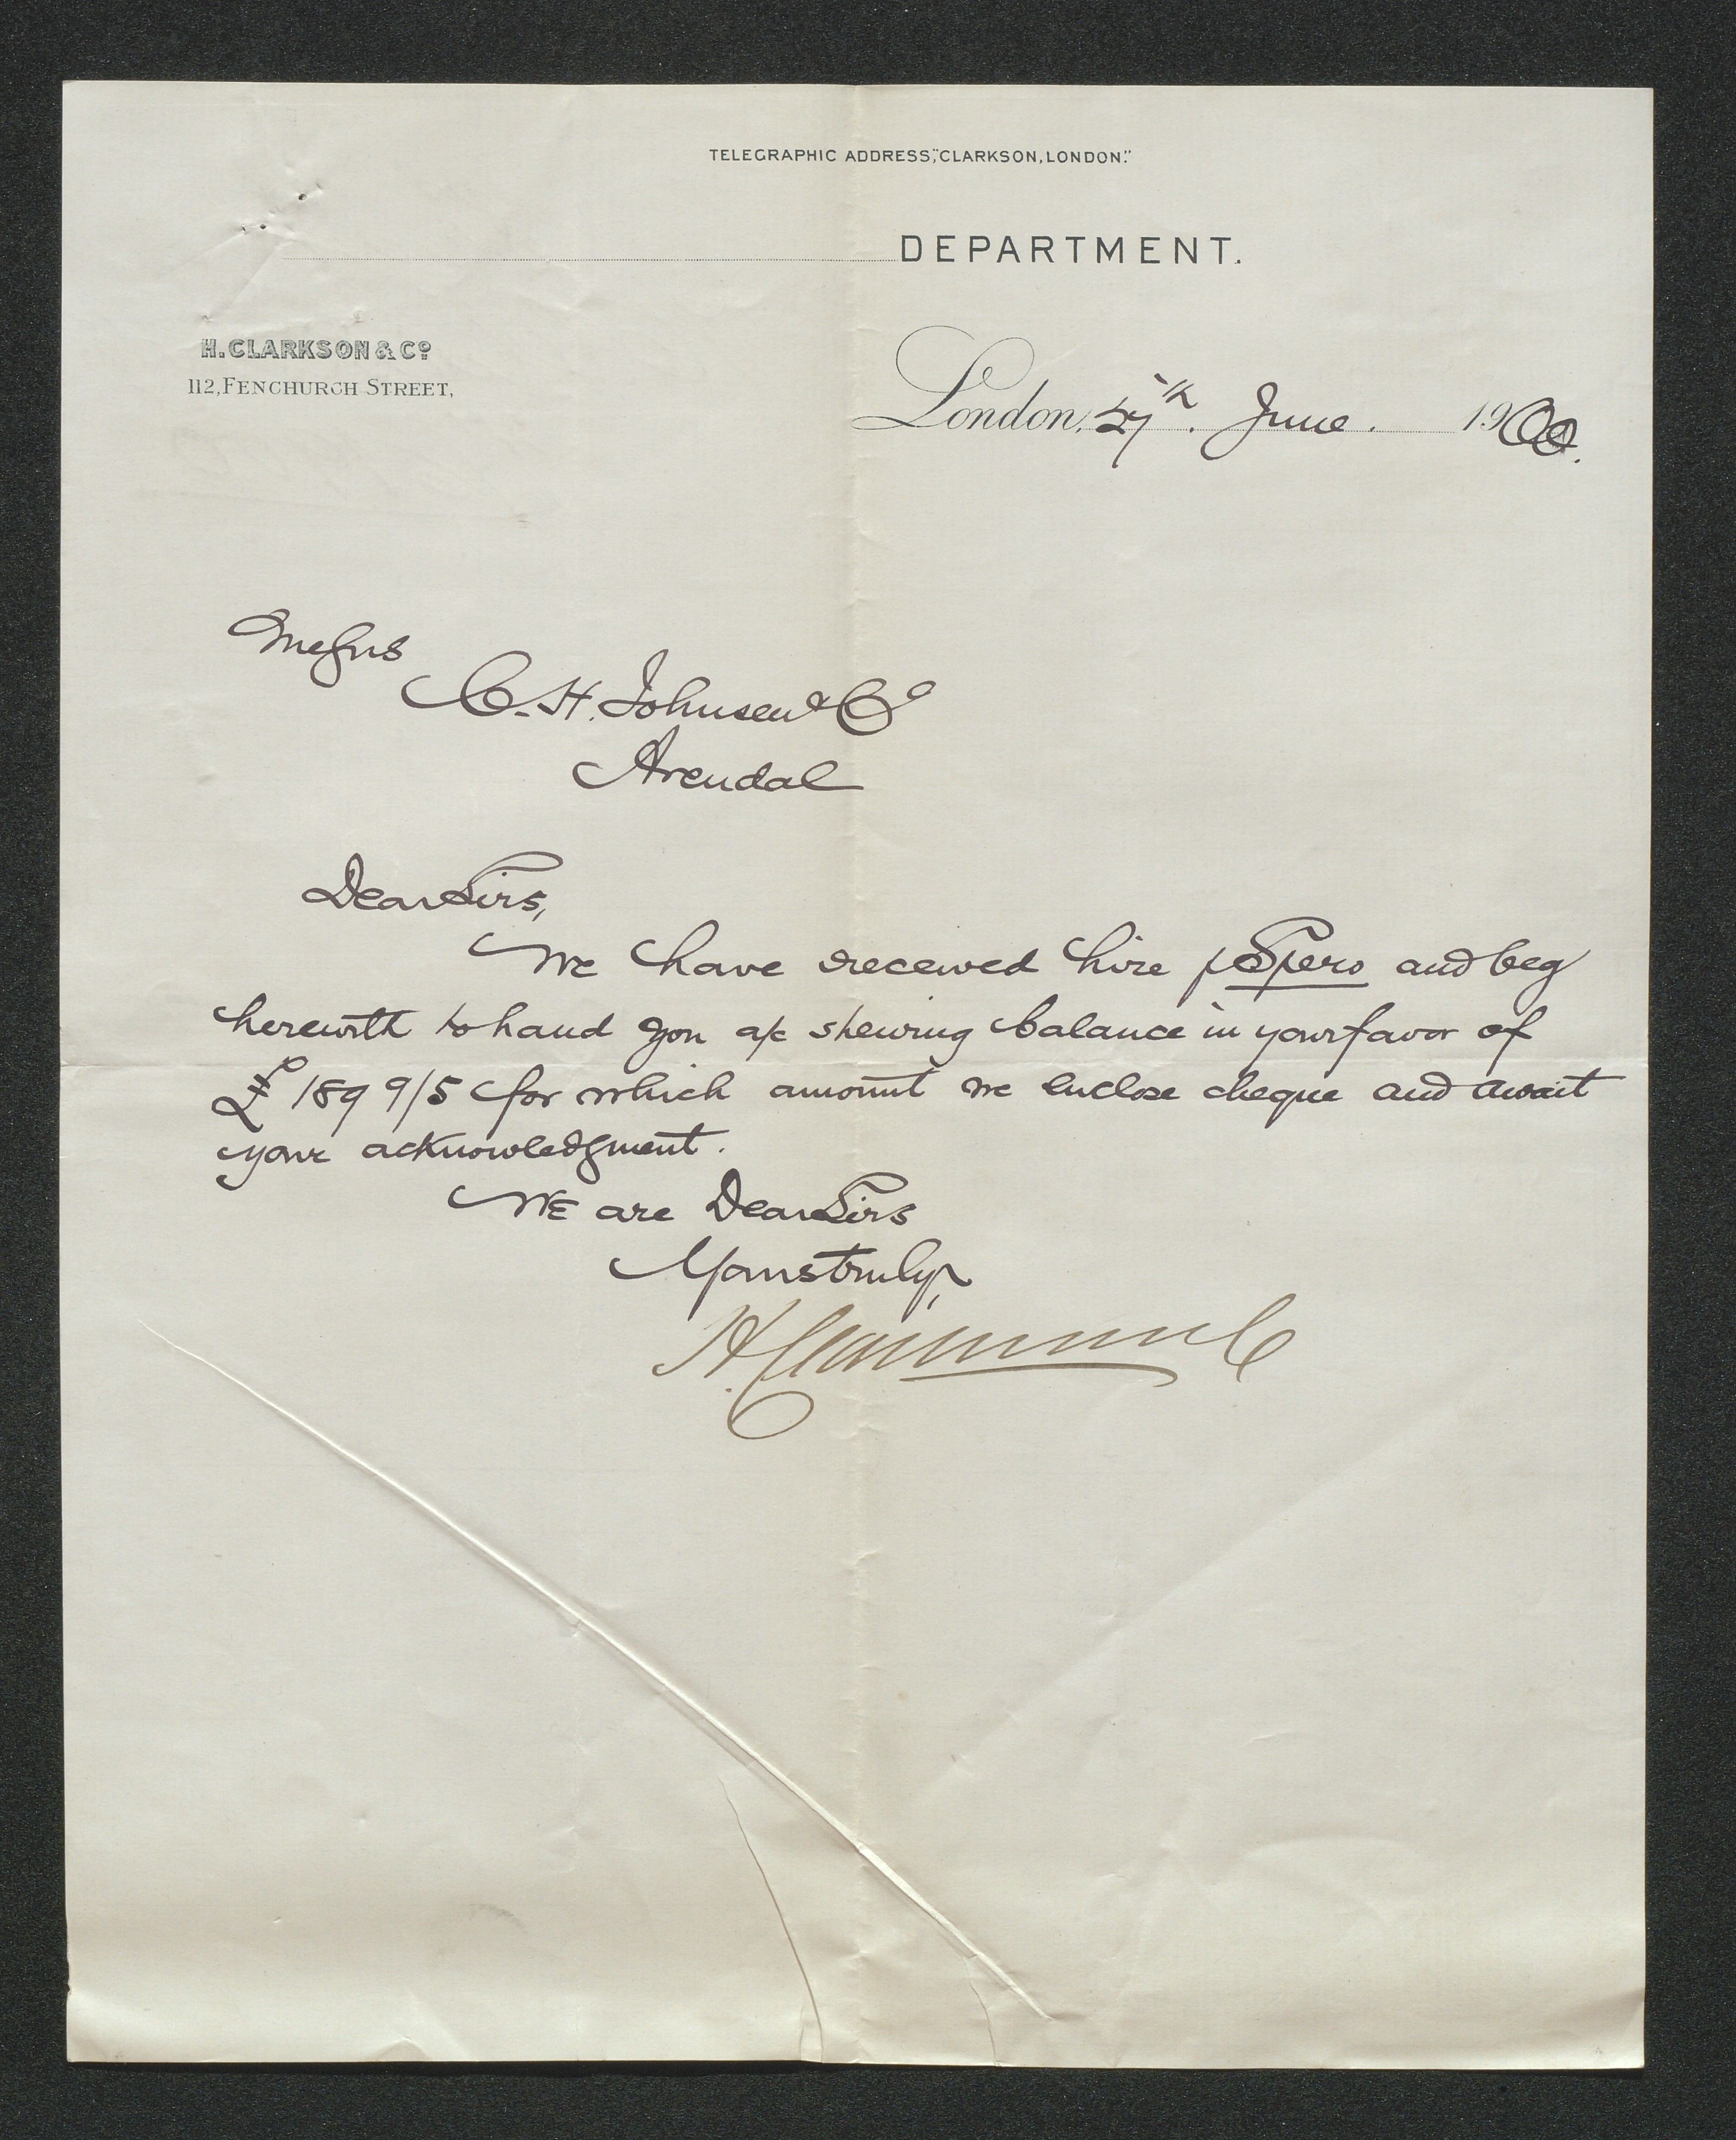 TELEGRAPHIC ADDRESS, "CLARKSON, LONDON."
DEPARTMENT.
H. CLARKSON & Co
112, FENCHURCH STREET,
London, 27th. June. 1900.
Messrs
C. H. Johnsen & Co
Arendal
Dear Sirs,
We have received hire p Spero and beg
herewith to hand you a/c shewing balance in your favor of
£189 9/5 for which amount we enclose cheque and await
your acknowledgment.
We are Dear Sirs
Yours truly,